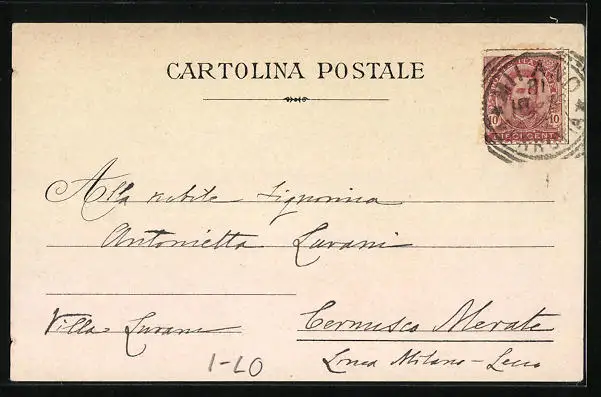 CARTOLINA POSTALE
MILANO
10 10
DIECI CENT
Alla nobile Signorina
Antonietta Lurani
Villa Lurani
Cernusco Merate
Linea Milano-Lecco
1-20